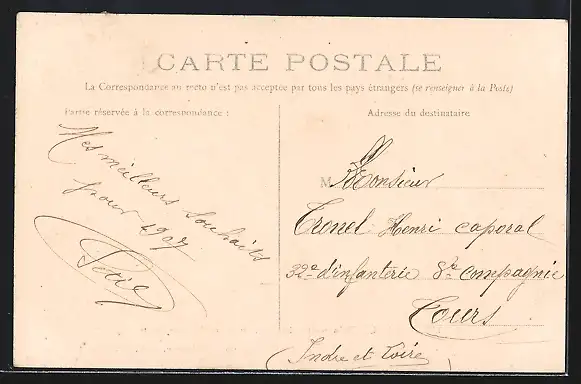 CARTE POSTALE
La Correspondance au recto n'est pas acceptée par tous les pays étrangers (se renseigner à la Poste)
Partie réservée à la correspondance :
Mes meilleurs souhaits
pour 1907
Adresse du destinataire
M Monsieur
Tronel Henri caporal
32e d'infanterie 8e compagnie
Tours
(Indre et Loire)